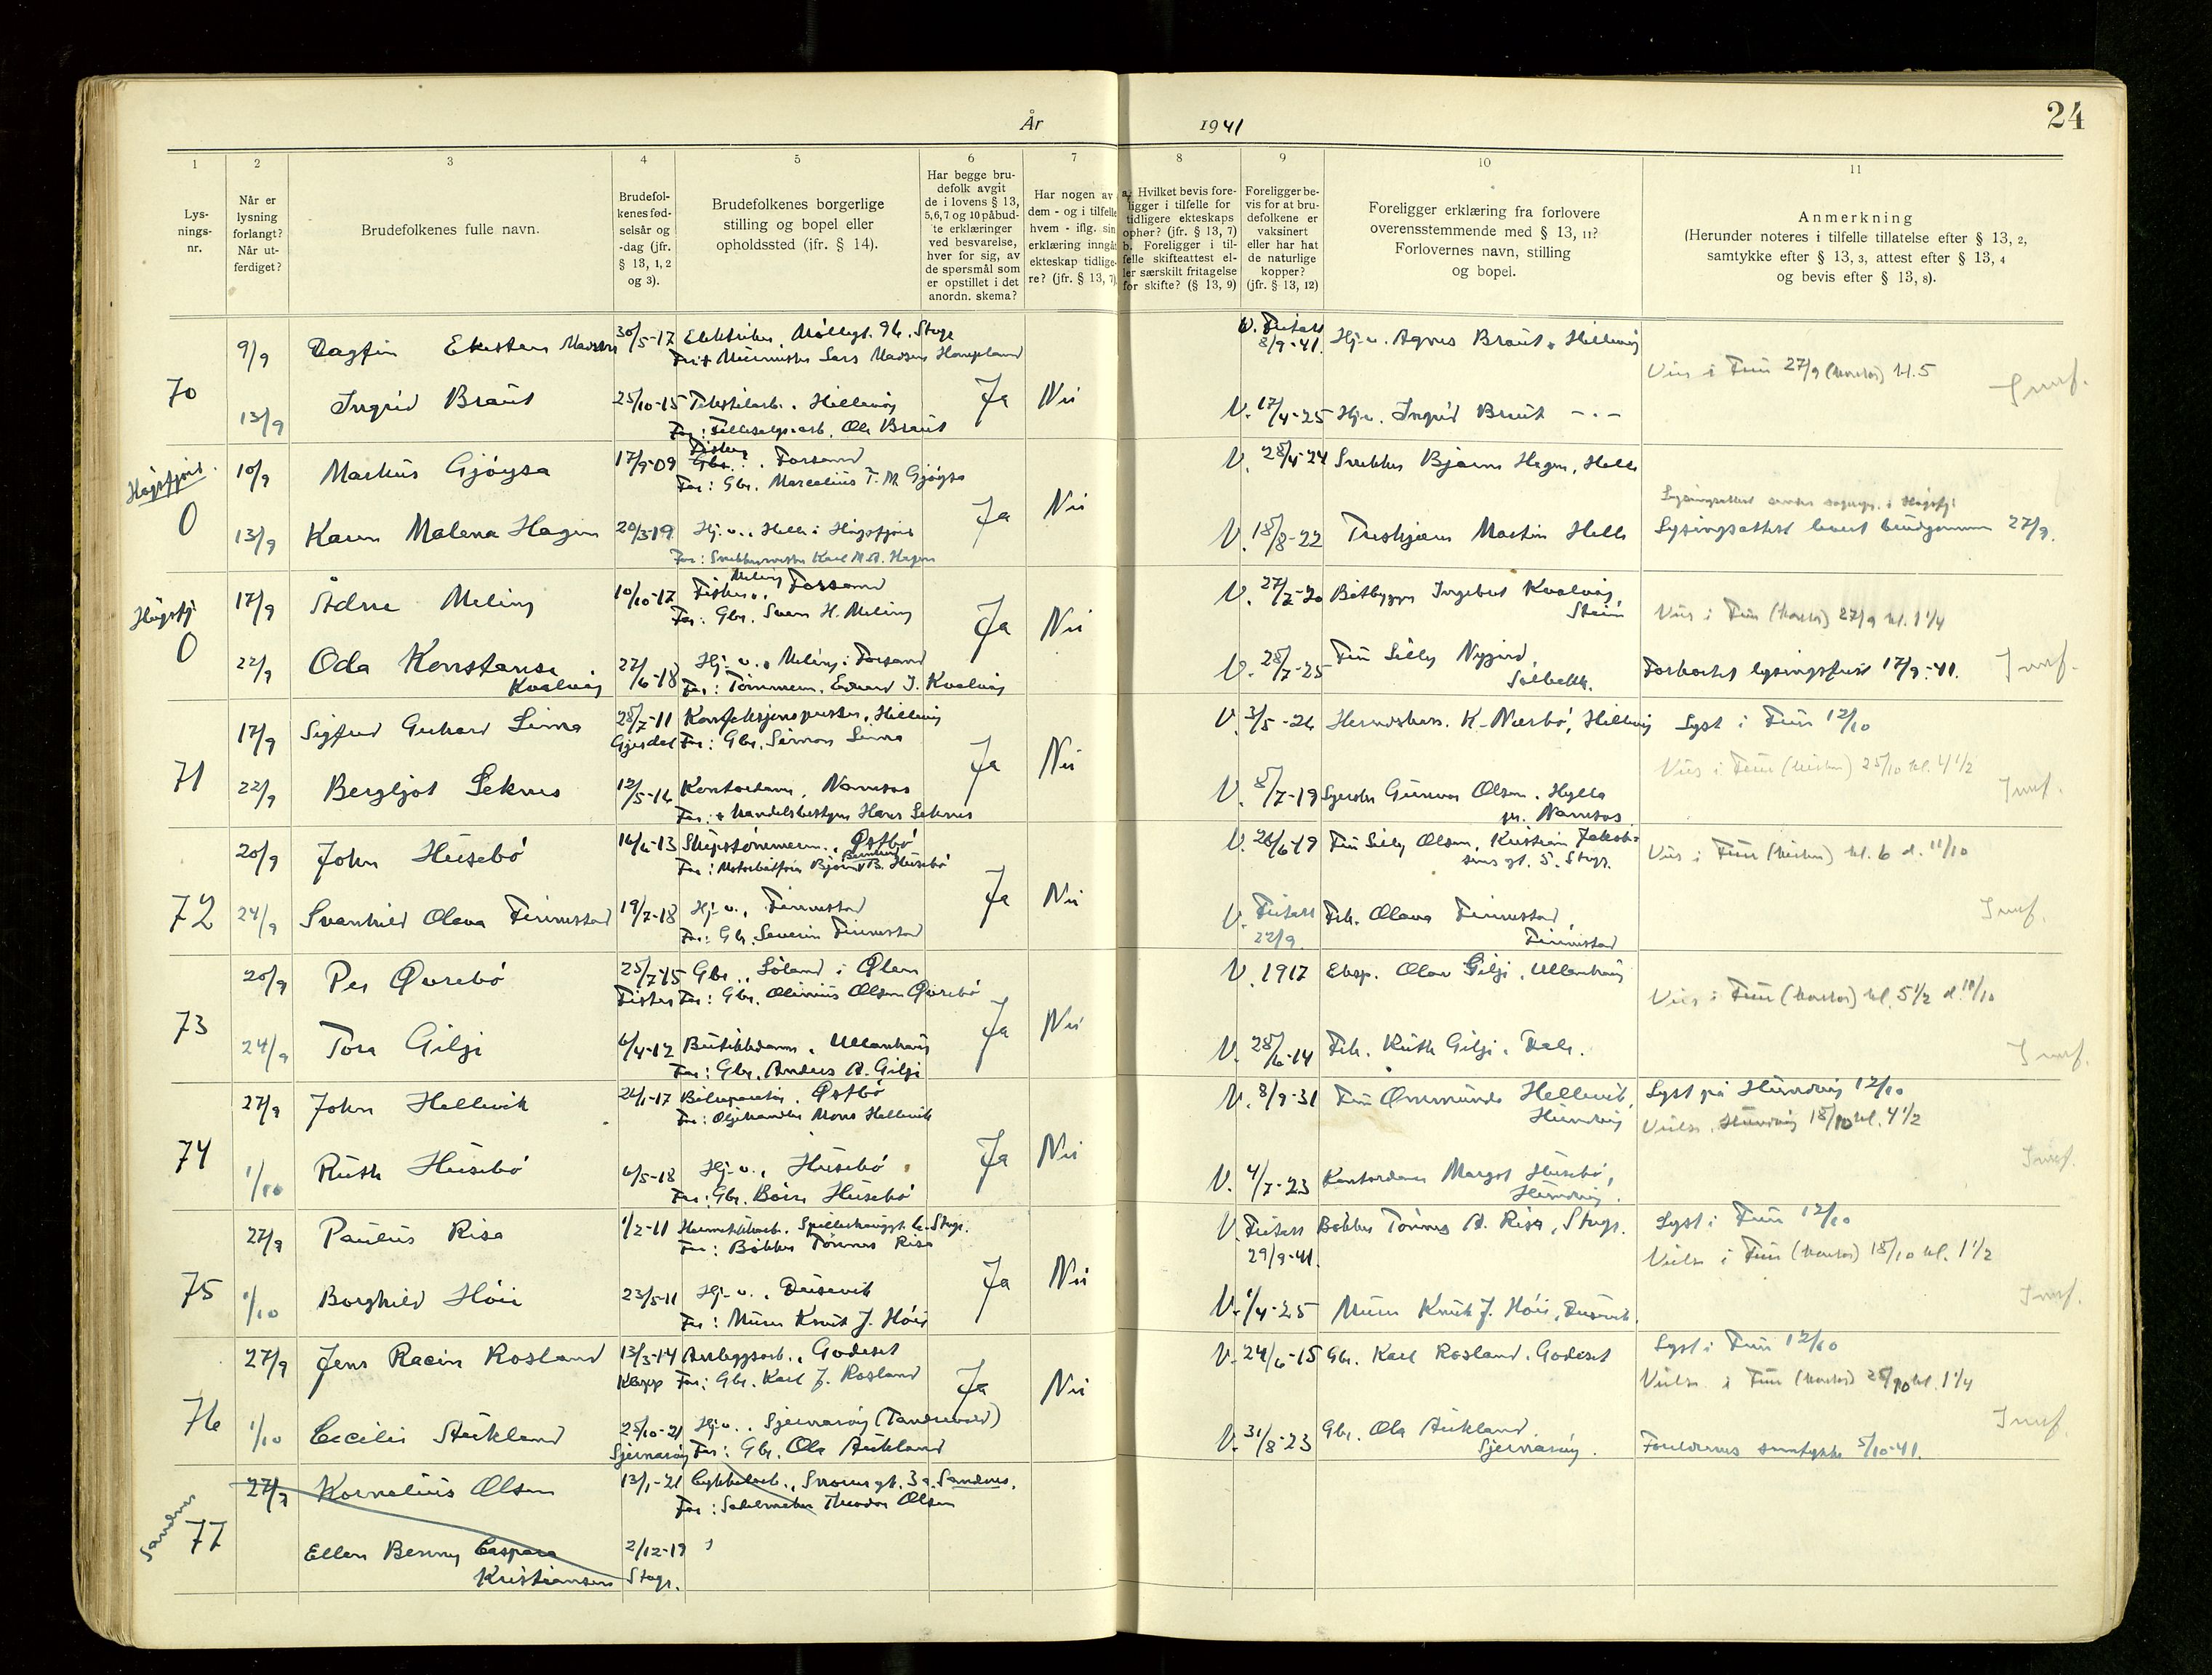 År 1941
24
1
2
3
4
5
6
7
8
9
10
11
Lys-
nings-
nr.
Når er
lysning
forlangt?
Når ut-
ferdiget?
Brudefolkenes fulle navn.
Brudefol-
kenes fød-
selsår og
-dag (jfr.
§ 13, 1, 2
og 3).
Brudefolkenes borgerlige
stilling og bopel eller
opholdssted (jfr. § 14).
Har begge bru-
defolk avgit
de i lovens § 13,
5, 6, 7 og 10 påbud-
te erklæringer
ved besvarelse,
hver for sig, av
de spørsmål som
er opstillet i det
anordn. skema?
Har nogen av
dem - og i tilfelle
hvem - iflg. sin
erklæring inngått
ekteskap tidlige-
re? (jfr. § 13, 7)
a. Hvilket bevis fore-
ligger i tilfelle for
tidligere ekteskaps
ophør? (jfr. § 13, 7)
b. Foreligger i til-
felle skifteattest el-
ler særskilt fritagelse
for skifte? (§ 13, 9)
Foreligger be-
vis for at bru-
defolkene er
vaksinert
eller har hat
de naturlige
kopper?
(jfr. § 13, 12)
Foreligger erklæring fra forlovere
overensstemmende med § 13, 11?
Forlovernes navn, stilling
og bopel.
Anmerkning
(Herunder noteres i tilfelle tillatelse efter § 13, 2,
samtykke efter § 13, 3, attest efter § 13, 4
og bevis efter § 13, 8).
70
9/9 Dagfin Madsen 30/5-17 Elektriker, Stvgr
Far: Murmester Lars Madsen
8/9-41. Hj.v. Agnes Braut, Hillevåg
Vies i Frue 27/9 (kontor) kl. 5
13/9 Ingrid Braut 25/10-15 Tekstilarb. Hillevåg
Far: Ole Braut
Ja Nei
V. 17/4-25 Hj.v. Ingrid Braut -"-
Høgsfjord.
0
10/9 Markus Gjøysa 17/9-09 Fisker Forsand
Far: Gbr. T. M. Gjøysa
V. 28/4-24 Snekker Bjarne Hagen, Helle
Ja Nei
Lysingsattest i Høgsfj
13/9 Karen Malena Hagen 20/3-19 Hj.v., Helle i Høgsfjord
Far: Snekkermester Karl M. A. Hagen
V. 18/8-22 Martin Helle
Lysingsattest levert brudgommen 27/9.
Høgsfj
0
17/9 Meling 10/10-17 Fisker, Meling Forsand
Far: Gbr. Sven H. Meling
V. 27/7-20 Båtbygger Ingebret Kvalvåg,
Ja Nei
Vies i Frue (kontor) 27/9 kl. 1 1/4
22/9 Oda Konstanse Kvalvåg 27/6-18 Hj.v., Meling i Forsand
Far: Tømmerm. Edvard J. Kvalvåg
V. 28/7-25 Fru Silly Nygård,
Solbakk.
Forkortet lysingsfrist 17/9-41.
71
17/9 Sigfred Gerhard Lima 28/7-11 Konfeksjonspresser, Hillevåg
Gjesdal Far: Gbr. Simon Lima
V. 3/5-26 K. Nærbø, Hillevåg
Lyst i Frue 12/10
Ja Nei
Vies i Frue (kirken) 25/10 kl. 4 1/2
22/9 Bergljot Seknes 12/5-16 Kontordame, Namsos
Far: Handelsbestyrer Hans Seknes
V. 8/7-19 Gunnar Olsen, Hylla
pr. Namsos
72
20/9 John Husebø 16/6-13 Skipstømmerm., Østbø
Far: B. Husebø
V. 26/6-19 Fru Silly Olsen, Kristian Jakob-
sens gt. 5. Stvgr.
Vies i Frue (kirken) kl. 6 d. 11/10
Ja Nei
24/9 Svanhild Olava Finnestad 19/7-18 Hj.v., Finnestad
Far: Gbr. Severin Finnestad
22/9. Frk. Olava Finnestad,
Finnestad
73
20/9 Per Øvrebø 25/7-15 Gbr., Søland i Ølen
Far: Gbr. Olinius Olsen Øvrebø
V. 1917 Eksp. Olav Gilje, Ullenhaug
Vies i Frue (kontor) kl. 5 1/2 d. 18/10
Ja Nei
24/9 Tora Gilje 6/4-12 Butikkdame, Ullenhaug
Far: Gbr. Anders A. Gilje
V. 28/6-14 Frk. Ruth Gilje, Dale.
74
27/9 John Hellevik 24/1-17 Østbø
Far: Oljehandler Mons Hellevik
V. 8/9-31 Fru Ommunda Hellevik,
Hundvåg
Lyst på Hundvåg 12/10
Vielse Hundvåg 18/10 kl. 4 1/2
Ja Nei
1/10 Ruth Husebø 6/5-18 Hj.v., Husebø
Far: Gbr. Børre Husebø
V. 4/7-23 Kontordame Margot Husebø,
Hundvåg.
75
27/9 Paulus Risa 1/2-11 Hermetikkarb. Stvgr.
Far: Bøkker Tønnes Risa
29/9-41. Bøkker Tønnes A. Risa, Stvgr.
Lyst i Frue 12/10
Vielse i Frue (kontor) 18/10 kl. 1 1/2
Ja Nei
1/10 Borghild Høie 23/5-11 Hj.v., Dusavik
Far: Murer Knut J. Høie
V. 1/4-25 Murer Knut J. Høie, Dusavik.
76
27/9 Jens Racin Rosland 13/3-14 Anleggsarb., Godeset
Klepp Far: Gbr. Karl J. Rosland
V. 24/6-15 Gbr. Karl Rosland, Godeset
Lyst i Frue 12/10
Vielse i Frue (kontor) kl. 1 1/4
Ja Nei
1/10 Cecilie Aukland 25/10-21 Hj.v., Sjernarøy
Sjernarøy Far: Gbr. Ola Aukland
V. 31/8-23 Gbr. Ola Aukland,
Sjernarøy.
Foreldrenes samtykke 5/10-41.
Sandnes
77
27/9 Kornelius Olsen 13/1-21 3a. Sandnes.
Far: Salmaker Theodor Olsen
Ellen Benny Caspara
Kristiansen 2/12-19
Stvgr.